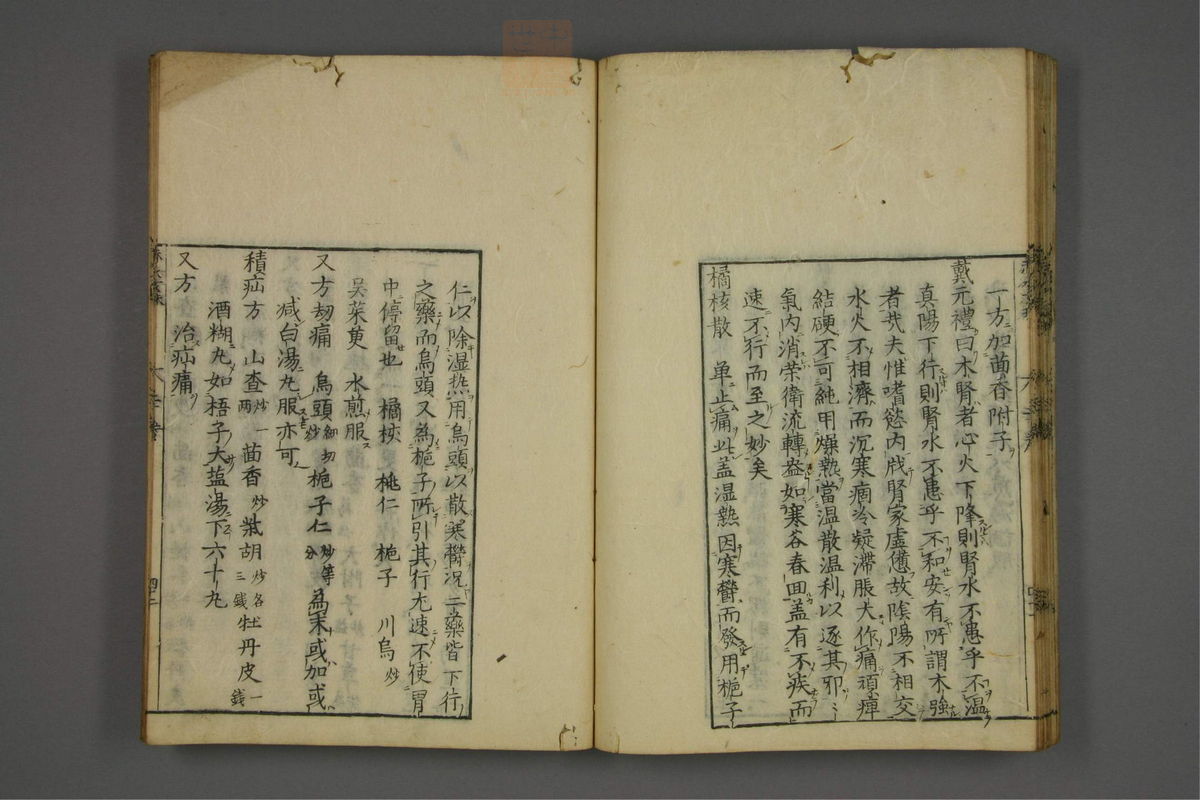 一方加茴香附子
戴元禮曰木腎者心火下降則腎水不患乎不温
真陽下行則腎水不患乎不和安有所謂木強
者哉夫惟嗜慾内戕腎家虚憊故陰陽不相交
水火不相濟而沉寒痼冷凝滯脹大作痛頑痺
結硬不可純用燥熱當温散温利以逐其邪
氣内消荣衛流轉盎如寒谷春回盖有不疾而
速不行而至之妙矣
橘核散 单止痛此盖湿熱因寒鬱而發用梔子
仁以除湿热用烏頭以散寒鬱况二藥皆下行
之藥而烏頭又為梔子所引其行尤速不使胃
中停留也 橘核 桃仁 梔子 川烏炒
吳茱萸 水煎服
又方劫痛 烏頭細切炒 梔子仁炒等分 為末或加或
减白湯丸服亦可
積疝方 山查炒一両 茴香炒 柴胡炒各三錢 牡丹皮一錢
酒糊丸如梧子大盐湯下六十丸
又方 治疝痛
四十二